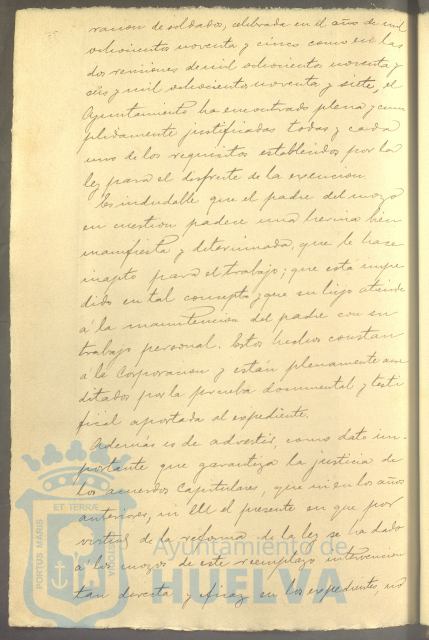 racion de soldados, celebrada en el año de mil
ochocientos noventa y cinco como en las
dos revisiones de mil ochocientos noventa y
seis y mil ochocientos noventa y siete, el
Ayuntamiento ha encontrado plena y cum
plidamente justificadas todas y cada
uno de los requisitos establecidos por la
ley para el disfrute de la exencion.
Es indudable que el padre del mozo
en cuestion padece una hernia bien
manifiesta y determinada, que le hace
inapto para el trabajo; que está impe
dido en tal concepto y que su hijo atiende
á la manutencion del padre con su
trabajo personal. Estos hechos constan
á la Corporacion y están plenamente acre
ditados por la prueba documental y testi
fical aportada al expediente.
Además es de advertir, como dato im-
portante que garantiza la justicia de
los acuerdos Capitulares, que ni en los años
anteriores, ni en el presente en que por
virtud de la reforma de la ley se ha dado
á los mozos de este reemplazo intervencion
tan directa y eficaz en los expedientes, no
PORTUS MARIS
ET TERRÆ
CUSTODIA
Ayuntamiento de
HUELVA